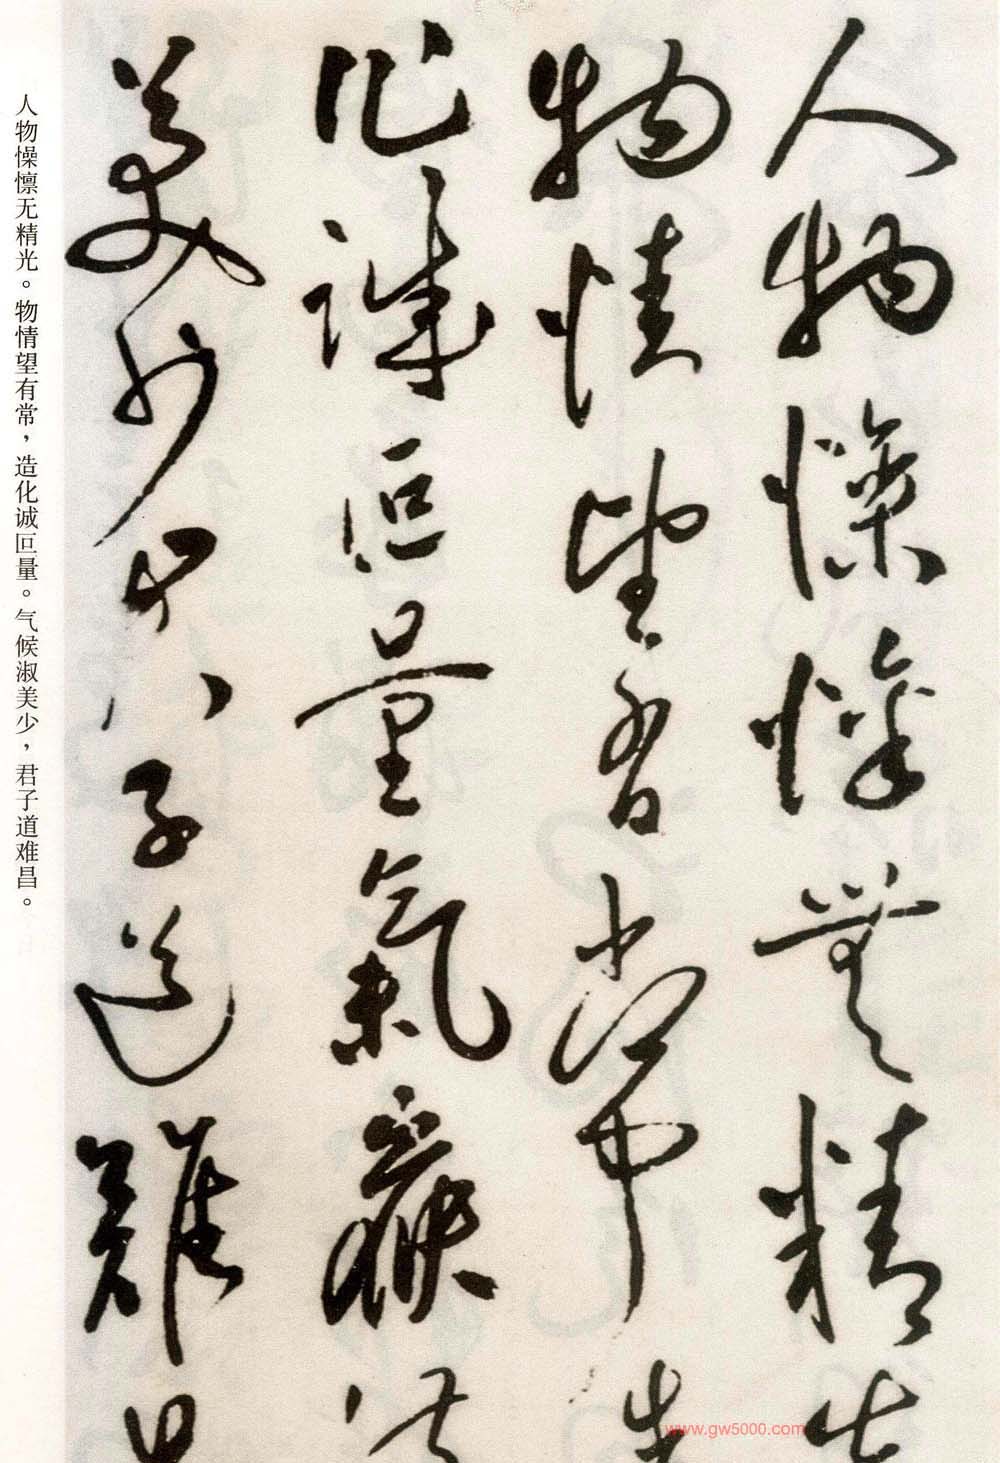 人物懆懍無精光
物情望有常造
化誠叵量氣候淑
美少君子道難昌
人物懆懔无精光。物情望有常，造化诚叵量。气候淑美少，君子道难昌。
www.gw5000.com